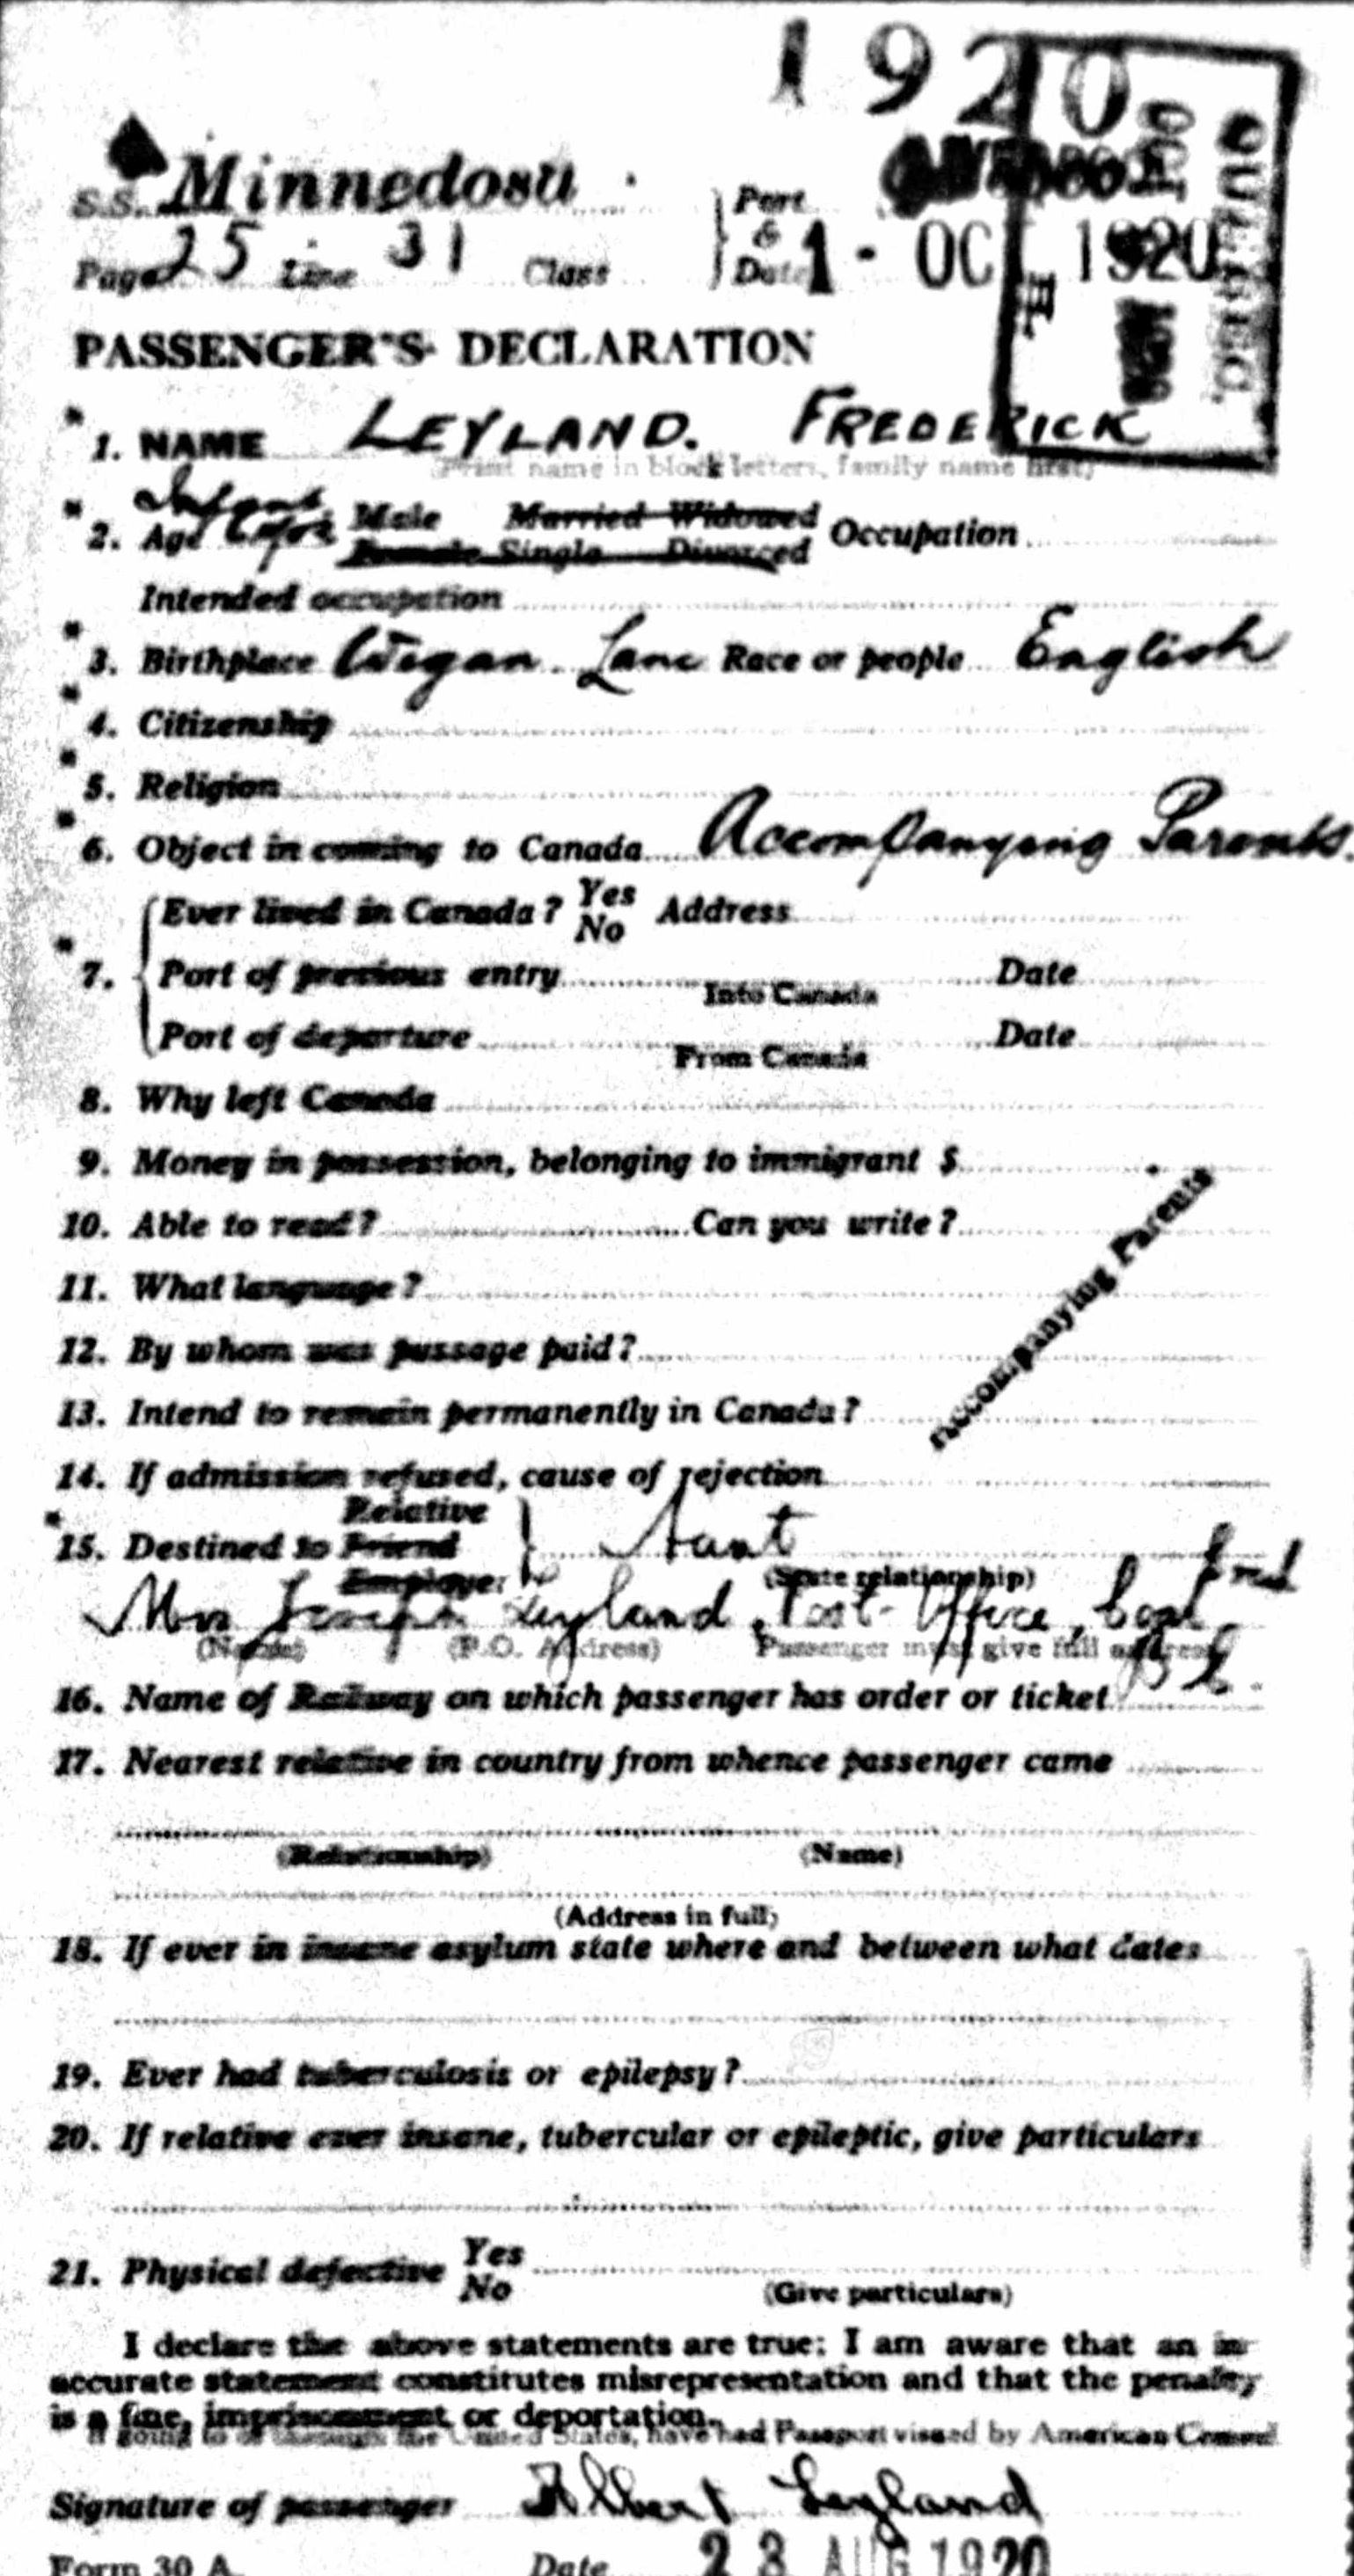 1920
S.S. Minnedosa
Page 25 Line 31 Class
Port & Date 1 - OCT 1920
PASSENGER'S DECLARATION
1. NAME LEYLAND. FREDERICK
(Print name in block letters, family name first)
Infant
2. Age Male Married Widowed Occupation
Female Single Divorced
Intended occupation
3. Birthplace Wigan Lanc Race or people English
4. Citizenship
5. Religion
6. Object in coming to Canada Accompanying Parents.
Ever lived in Canada? Yes No Address
7. Port of previous entry Into Canada Date
Port of departure From Canada Date
8. Why left Canada
9. Money in possession, belonging to immigrant $
10. Able to read? Can you write?
11. What language?
12. By whom was passage paid?
13. Intend to remain permanently in Canada?
Accompanying Parents
14. If admission refused, cause of rejection
Relative
15. Destined to Friend Aunt
Employer (State relationship)
Mrs Joseph Leyland, Post Office, Coal
(Name) (P.O. Address) Passenger must give full address
16. Name of Railway on which passenger has order or ticket
17. Nearest relative in country from whence passenger came
(Relationship) (Name)
(Address in full)
18. If ever in insane asylum state where and between what dates
19. Ever had tuberculosis or epilepsy?
20. If relative ever insane, tubercular or epileptic, give particulars
21. Physical defective Yes No
(Give particulars)
I declare the above statements are true: I am aware that an in-
accurate statement constitutes misrepresentation and that the penalty
is a fine, imprisonment or deportation.
If going to or through the United States, have had Passport visaed by American Consul
Signature of passenger Albert Leyland
Form 30 A. Date 23 AUG 1920